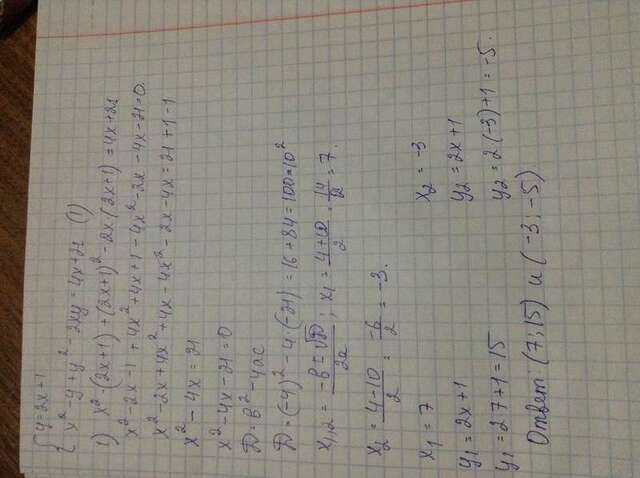 { y = 2x+1
x² - y + y² - 2xy = 4x+21 (1)
1) x² - (2x+1) + (2x+1)² - 2x·(2x+1) = 4x+21
x² - 2x - 1 + 4x² + 4x + 1 - 4x² - 2x - 4x - 21 = 0
x² - 2x + 4x² + 4x - 4x² - 2x - 4x = 21 + 1 - 1
x² - 4x = 21
x² - 4x - 21 = 0
D = b² - 4ac
D = (-4)² - 4·(-21) = 16 + 84 = 100 = 10²
x₁,₂ = (-b ± √D)/2a ; x₁ = (4+10)/2 = 14/2 = 7.
x₂ = (4-10)/2 = -6/2 = -3.
x₁ = 7 x₂ = -3
y₁ = 2x+1 y₂ = 2x+1
y₁ = 2·7+1 = 15 y₂ = 2·(-3)+1 = -5.
Ответ: (7; 15) и (-3; -5)